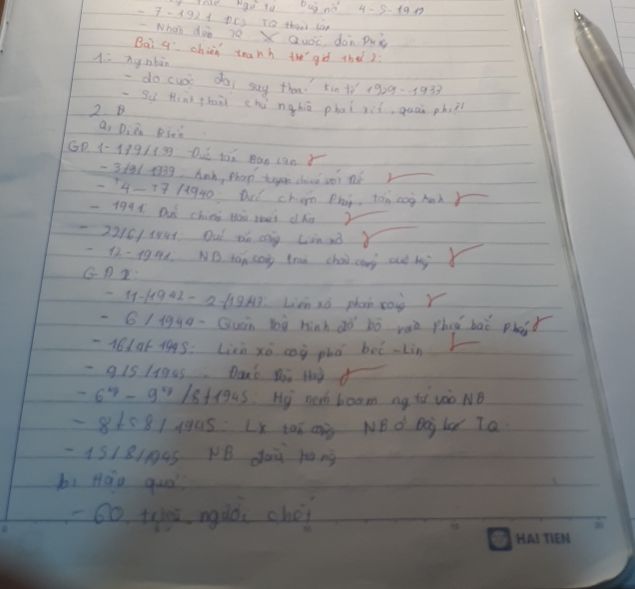 - 7-1921 ĐCS TQ thành lập
- Nhân dân TQ X Quốc dân Đảng
Bài 4: chiến tranh thế giới thứ 2:
1: ng nhân
- do cuộc đại suy thoái kinh tế 1929-1933
- Sự hình thành chủ nghĩa phát xít, quân phiệt
2. B
a, Diễn Biến
GĐ 1 - 1/9/139 Đức tấn Ban Lan
- 3/9/1939. Anh, Pháp tuyên chiến với Đức
- T4 - T7/1940. Đức chiếm Pháp, tấn công Anh
- 1941. Đức chiếm
- 22/6/1941. Đức tấn công Liên xô
- 12-1941. NB tấn công trân châu cảng
GĐ 2:
- 11-/1942 - 2-/1943. Liên xô phản công
- 6/1944 - Quân Đồng minh đổ bộ vào phía bắc Pháp
- 16/04 1945: Liên xô công phá béc-lin
- 9/5/1945. Đức
- 6 - 9/8/1945: Mỹ ném boom ng tử vào NB
- 8/1945: LX tấn công NB ở Đông Bắc TQ.
- 15/8/1945 NB đầu hàng
b, Hậu quả:
- 60 triệu người chết
HAI TIEN